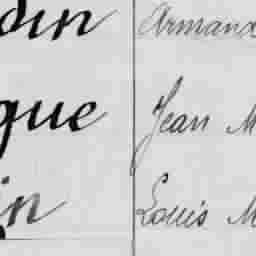 din Armand
que Jean M
in Louis M